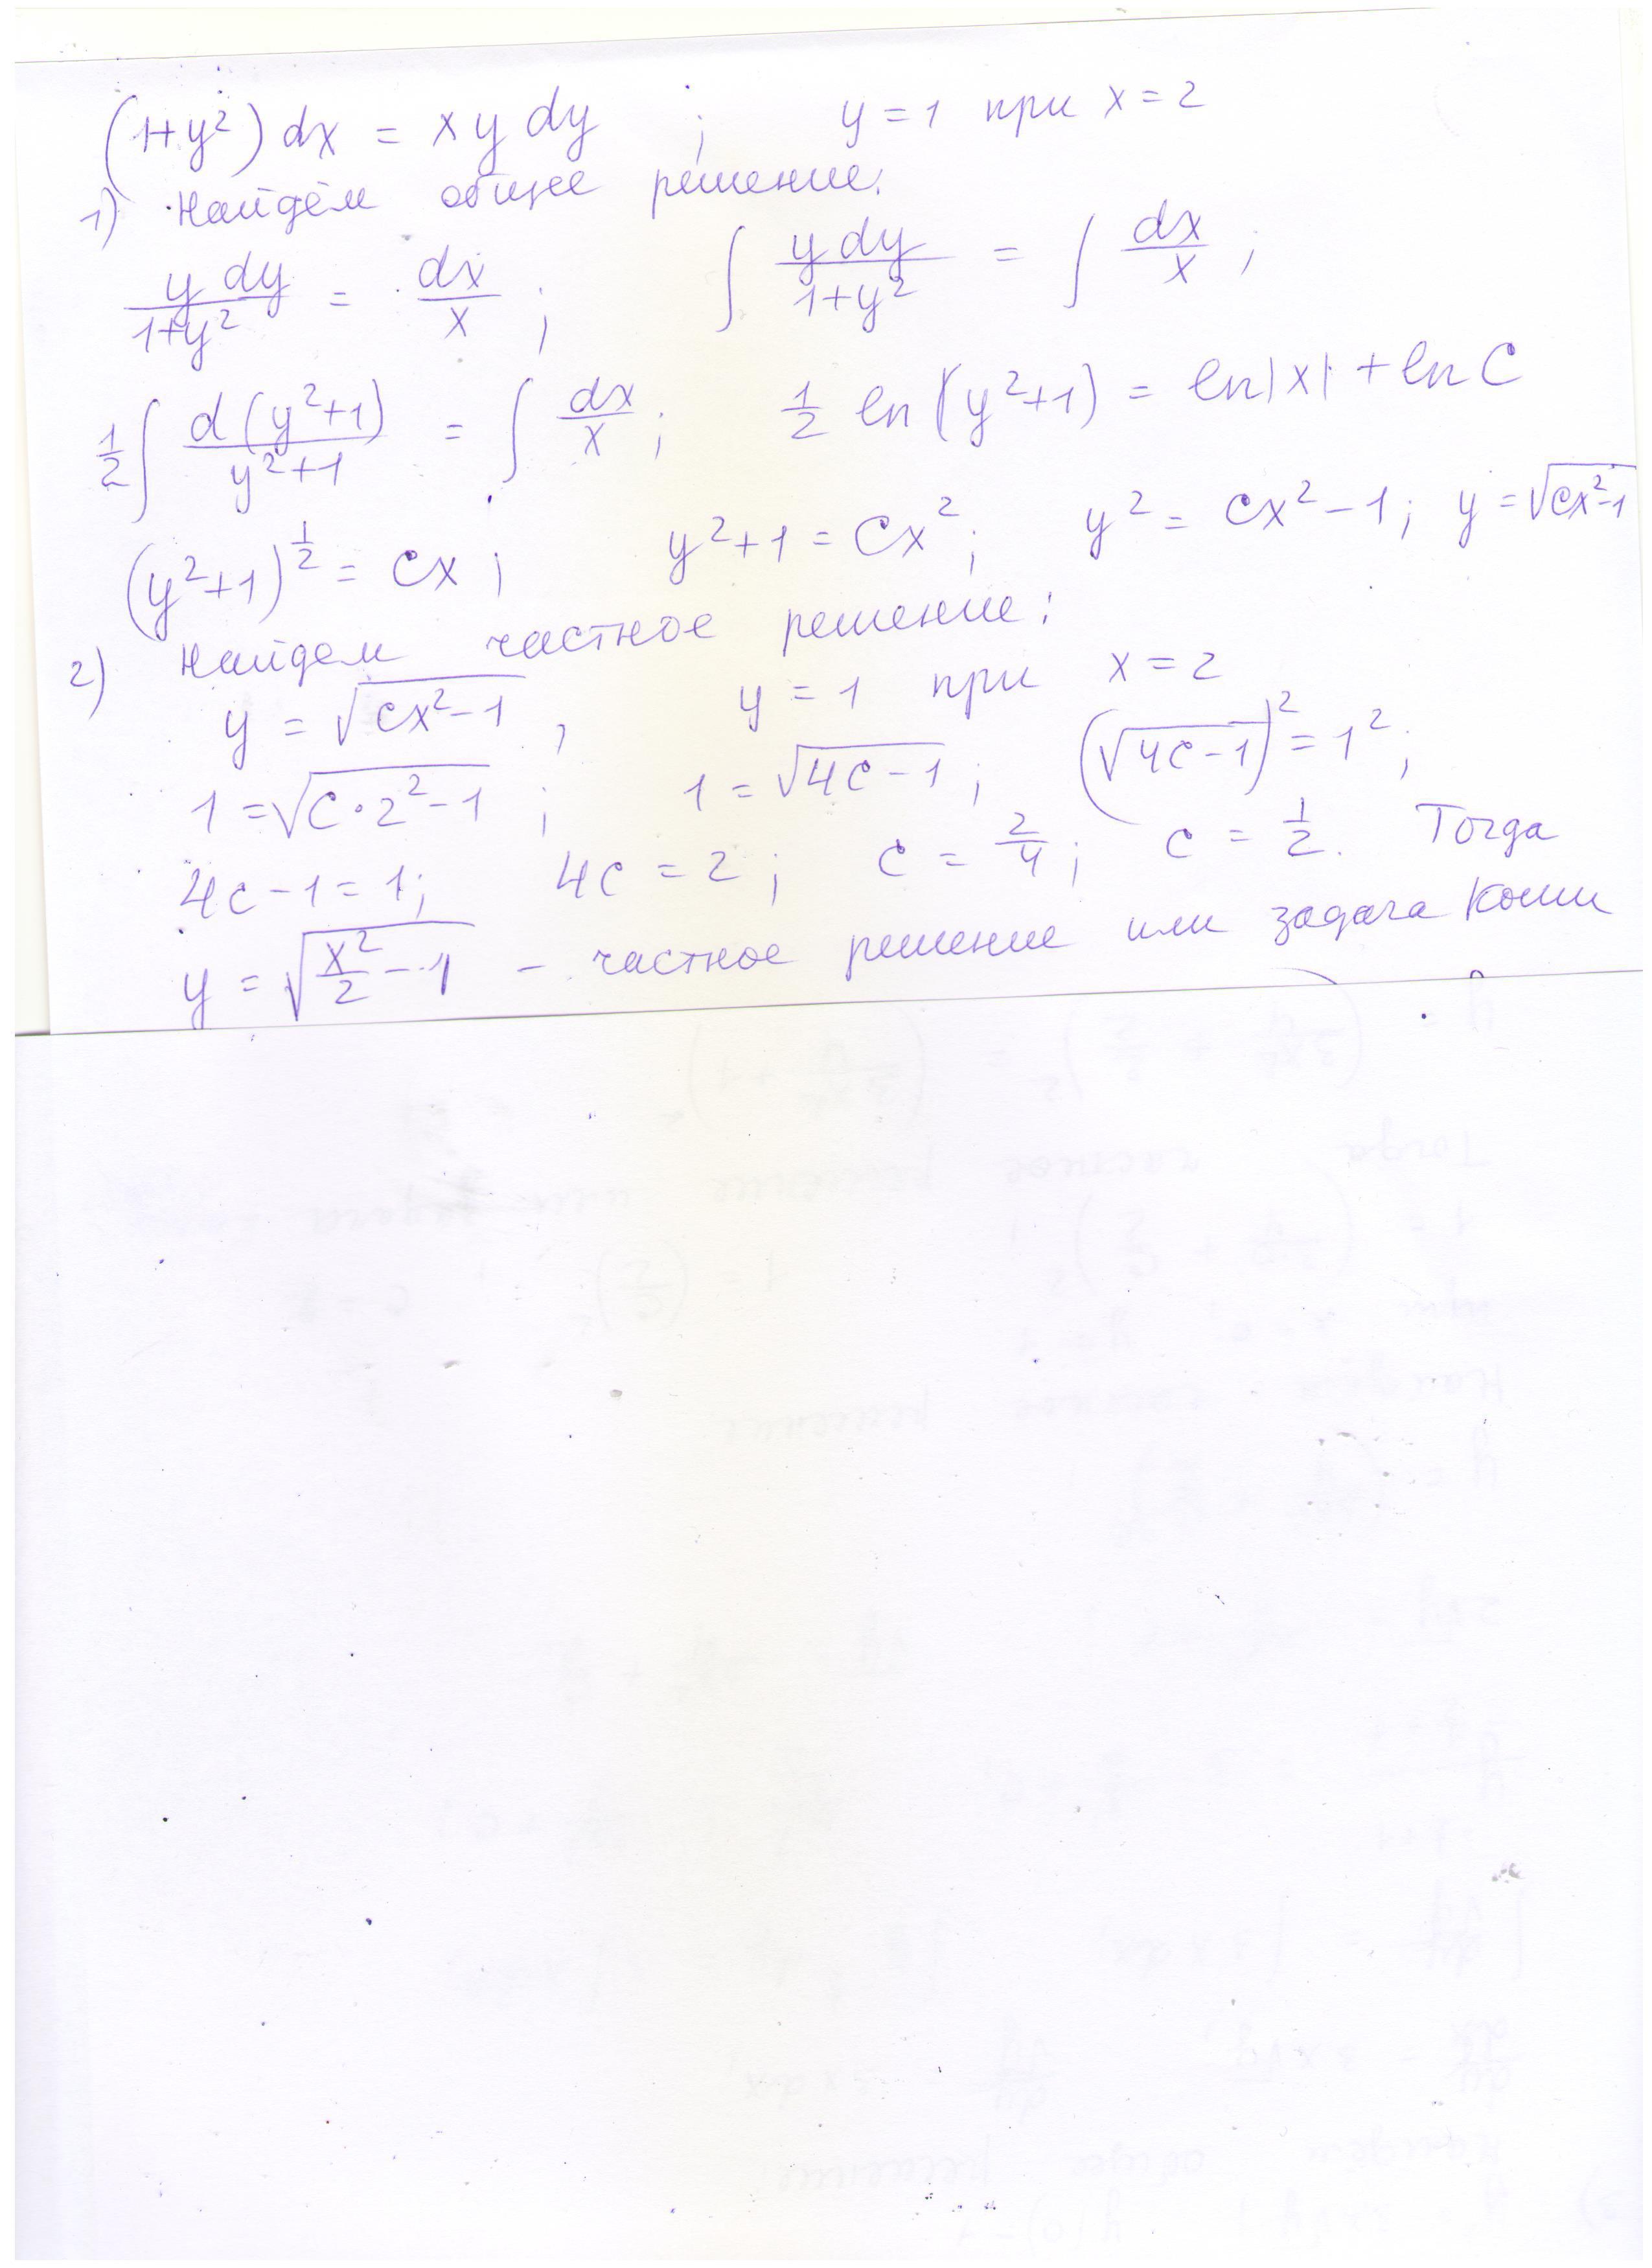 (1+y²) dx = x y dy ; y = 1 при x = 2
1) Найдём общее решение:
y dy/1+y² = dx/x ; ∫ y dy/1+y² = ∫ dx/x ;
1/2 ∫ d(y²+1)/y²+1 = ∫ dx/x ; 1/2 ln(y²+1) = ln|x| + ln C
(y²+1)^1/2 = cx ; y²+1 = Cx² ; y² = cx²-1 ; y = √cx²-1
2) Найдем частное решение:
y = √cx²-1 , y = 1 при x = 2
1 = √c·2²-1 ; 1 = √4c-1 ; (√4c-1)² = 1² ;
4c-1 = 1 ; 4c = 2 ; c = 2/4 ; c = 1/2. Тогда
y = √x²/2 - 1 - частное решение или задача Коши